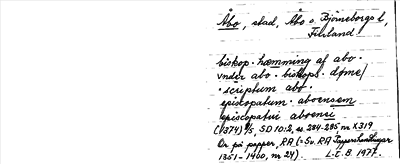 Åbo, stad, Åbo o. Björneborgs l,
Finland
biskop · hæmming af abo ·
vnder abo · biskops · døme/
· scriptum abo ·
episcopatum · aboensem
episcopatui aboensi
(1374) 4/5, SD 10:2, ss. 284-285, nr X319
Or på papper, RA (=Sv. RA Pappershandlingar
1351-1400, nr 24). L-E. B. 1977.